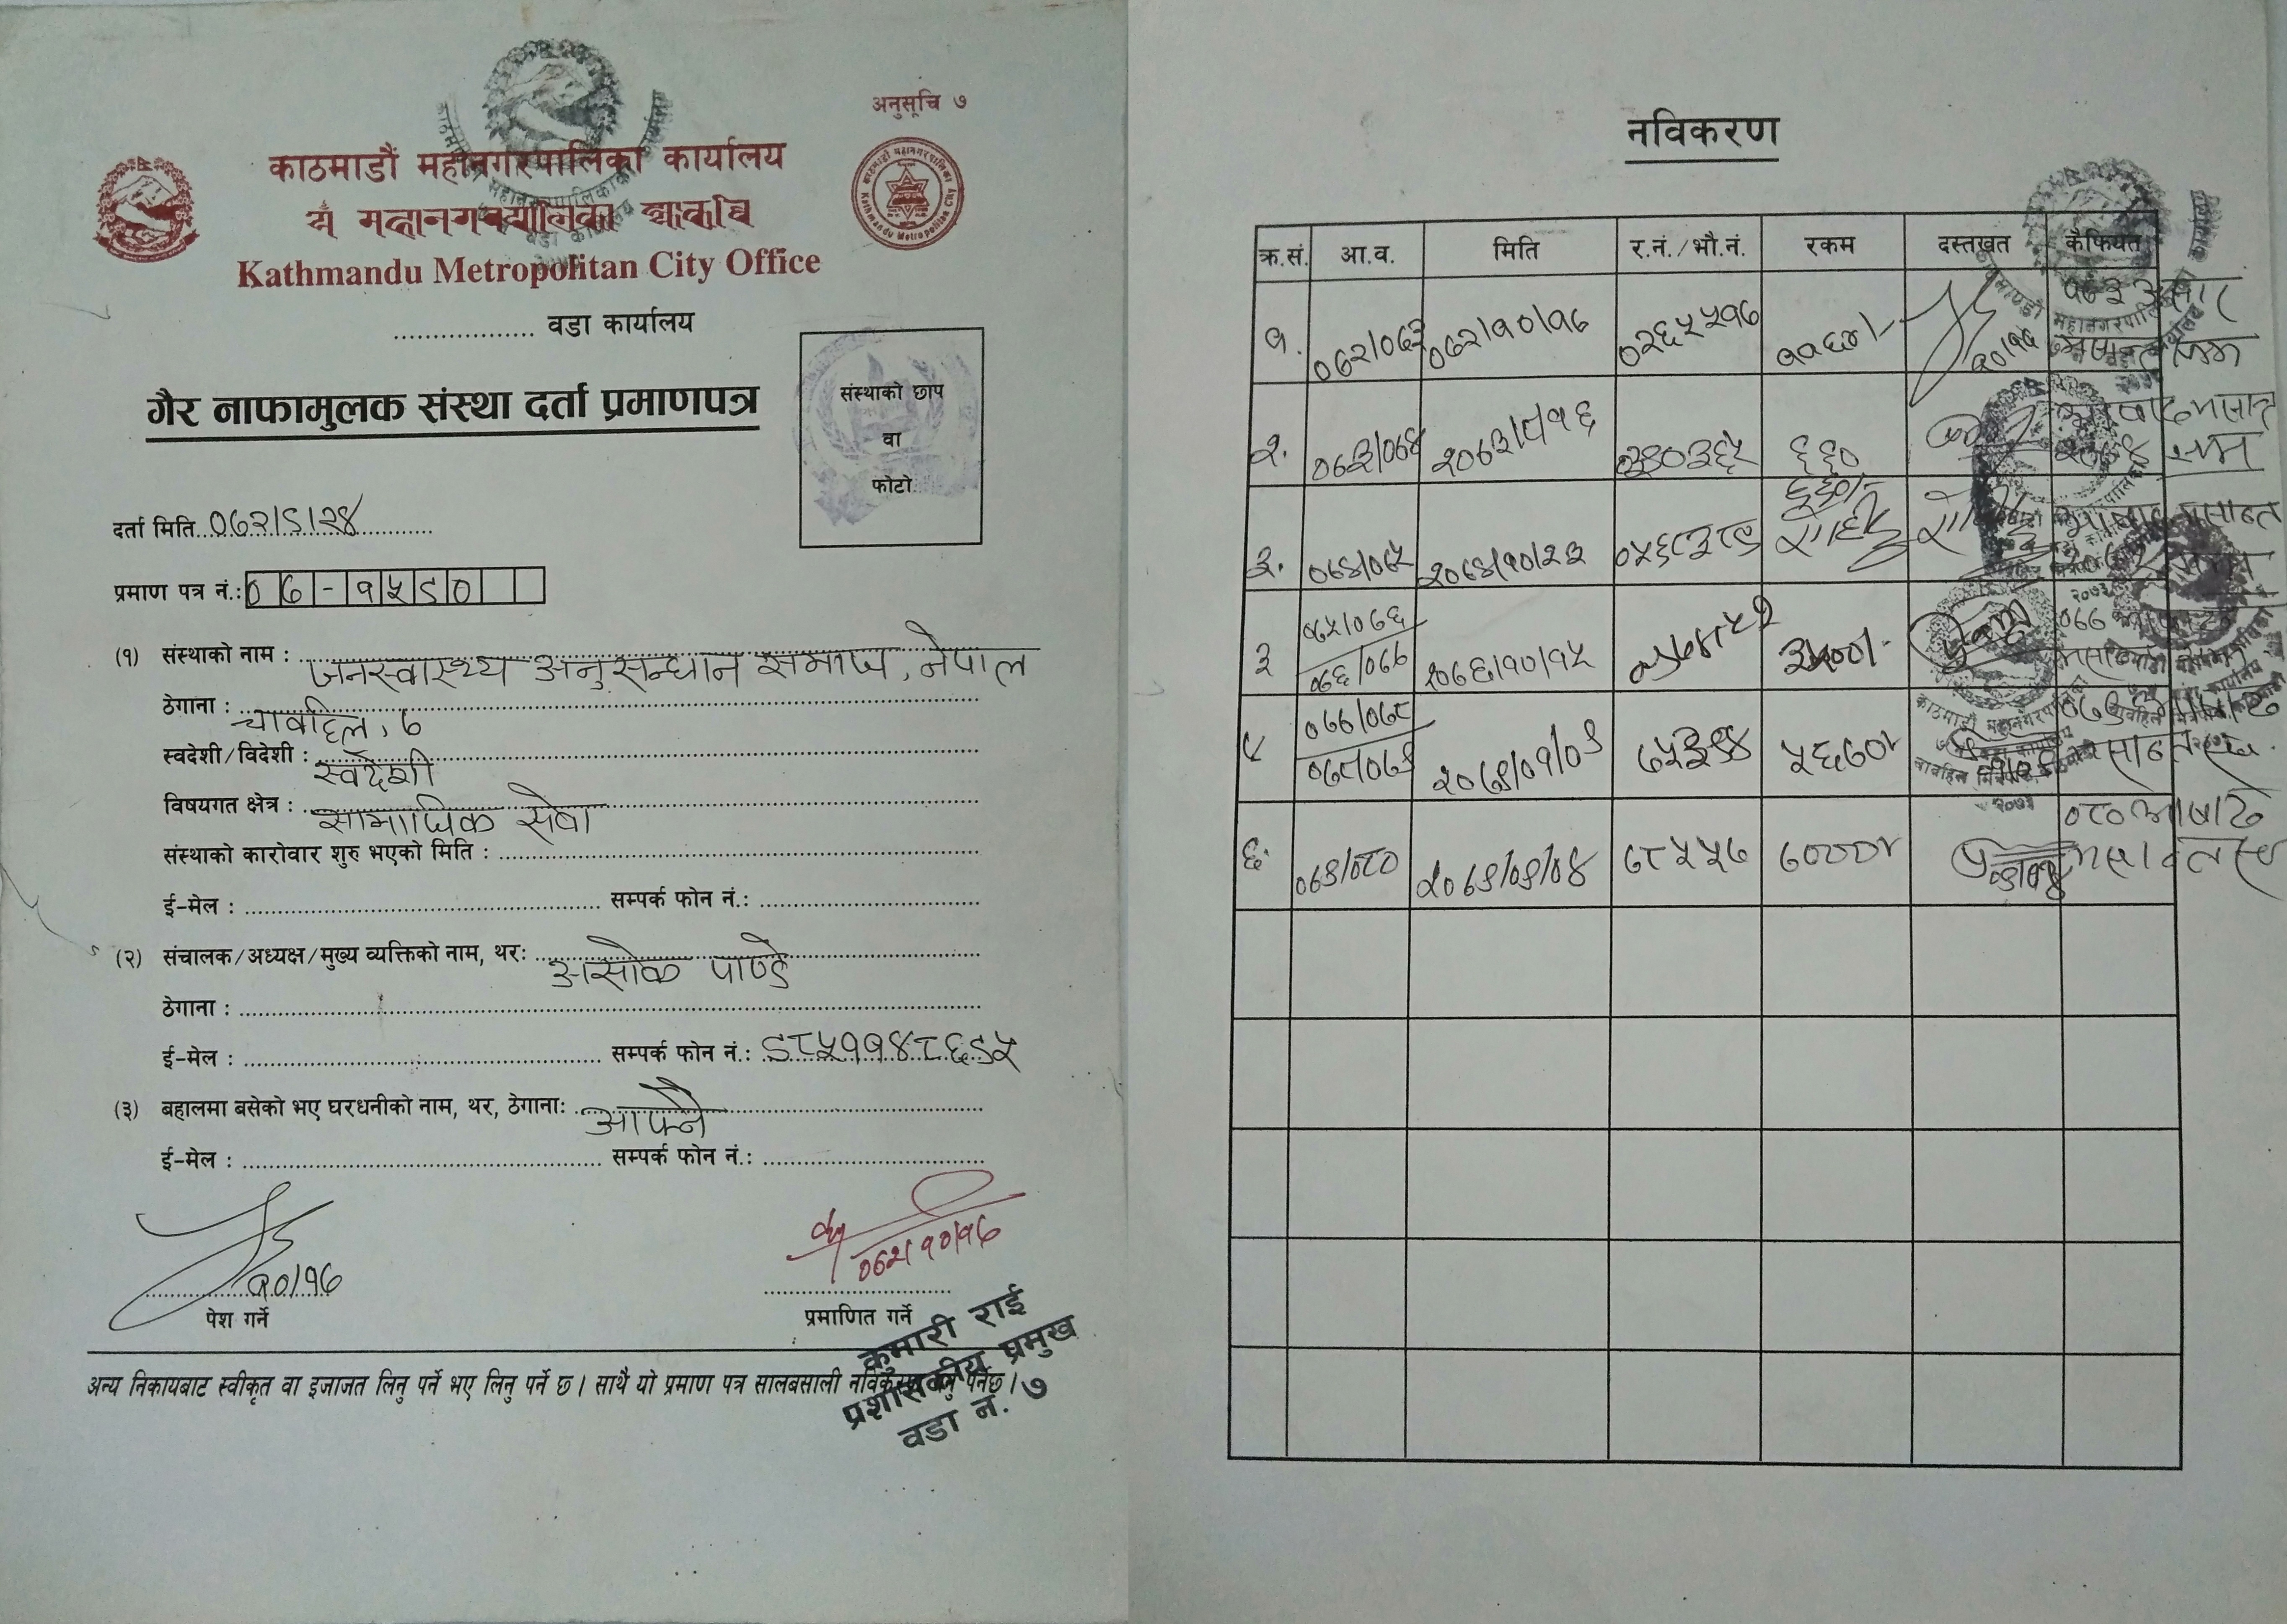 अनुसूचि ७
काठमाडौं महानगरपालिका कार्यालय
Kathmandu Metropolitan City Office
.................. वडा कार्यालय
गैर नाफामुलक संस्था दर्ता प्रमाणपत्र
संस्थाको छाप
वा
फोटो
दर्ता मिति ०७२/९/२४
प्रमाण पत्र नं.: ०७-१५९०
(१) संस्थाको नाम : जनस्वास्थ्य अनुसन्धान समाज, नेपाल
ठेगाना : चावहिल, ७
स्वदेशी/विदेशी : स्वदेशी
विषयगत क्षेत्र : सामाजिक सेवा
संस्थाको कारोवार शुरु भएको मिति :
ई-मेल : सम्पर्क फोन नं.:
(२) संचालक/अध्यक्ष/मुख्य व्यक्तिको नाम, थरः असोक पाण्डे
ठेगाना :
ई-मेल : सम्पर्क फोन नं.: ९८५११४८६९५
(३) बहालमा बसेको भए घरधनीको नाम, थर, ठेगानाः आफ्नै
ई-मेल : सम्पर्क फोन नं.:
१०/१७
०७२/१०/१७
पेश गर्ने
प्रमाणित गर्ने
कुमारी राई
प्रशासकीय प्रमुख
वडा नं. ७
अन्य निकायबाट स्वीकृत वा इजाजत लिनु पर्ने भए लिनु पर्ने छ। साथै यो प्रमाण पत्र सालबसाली नविकरण गर्नु पर्नेछ।
नविकरण
क्र.सं. आ.व. मिति र.नं./भौ.नं. रकम दस्तखत कैफियत
१. ०७२/०७३ ०७२/१०/१७ ०२६५५१७ १०/१७
२. ०७३/०७४ २०७३/८/१६ ६६०
३. ०७४/०७५ २०७४/१०/२३ ०५६८३८९ ६६०/-
३ ०७५/०७६ ०७६/०७७ २०७६/१०/१५
५ ०७७/०७८ ०७८/०७९ २०७९/०१/०९ ५६७०/-
६. ०७९/०८० २०७९/०९/०४ ७८५५७ ७०००/- ०८० आषाढ मसान्त सम्म